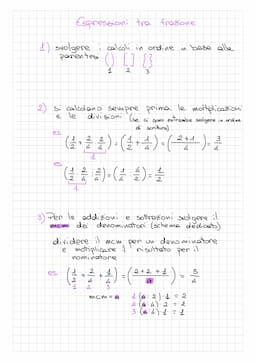 Espressioni tra frazione
1) svolgere i calcoli in ordine in base alle
parentesi ( ) [ ] { }
1 2 3
2) si calcolano sempre prima le moltiplicazioni
e le divisioni (se ci sono entrambe svolgere in ordine
di scrittura)
es (1/2 + 2/4 · 2/4) = (1/2 + 1/4) = (2+1/4) = 3/4
1
es
3) Per le addizioni e sottrazioni svolgere il
mcm dei denominatori (schema dedicato)
dividere il mcm per un denominatore
e moltiplicare il risultato per il
nominatore
es (2/4 + 2/4 + 1/4) = (2+2+1/4) = 5/4
1 2 3
mcm = 4